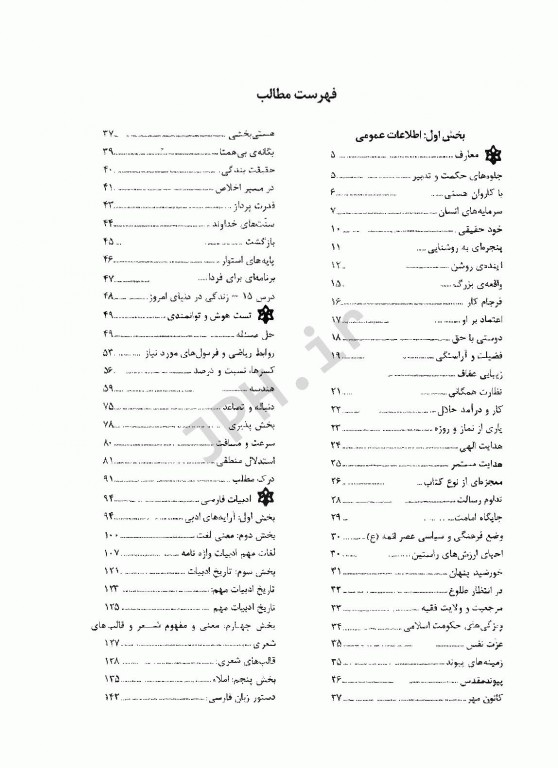 فهرست مطالب
بخش اول: اطلاعات عمومی
معارف ۵
جلوه‌های حکمت و تدبیر ۵
با کاروان هستی ۶
سرمایه‌های انسان ۷
خود حقیقی ۱۰
پنجره‌ای به روشنایی ۱۱
آینده‌ی روشن ۱۲
واقعه‌ی بزرگ ۱۵
فرجام کار ۱۶
اعتماد بر او ۱۷
دوستی با حق ۱۸
فضیلت و آراستگی ۱۹
زیبایی عفاف
نظارت همگانی ۲۱
کار و درآمد حلال ۲۲
یاری از نماز و روزه ۲۳
هدایت الهی ۲۴
هدایت مستمر ۲۵
معجزه‌ای از نوع کتاب ۲۶
تداوم رسالت ۲۸
جایگاه امامت ۲۹
وضع فرهنگی و سیاسی عصر ائمه (ع) ۳۰
احیای ارزش‌های راستین ۳۰
خورشید پنهان ۳۱
در انتظار طلوع ۳۲
مرجعیت و ولایت فقیه ۳۳
ویژگی‌های حکومت اسلامی ۳۴
عزت نفس ۳۵
زمینه‌های پیوند ۳۵
پیوندمقدس ۳۶
کانون مهر ۳۷
هستی‌بخشی ۳۷
یگانه‌ی بی‌همتا ۳۹
حقیقت بندگی ۴۰
در مسیر اخلاص ۴۱
قدرت پرداز ۴۳
سنّت‌های خداوند ۴۴
بازگشت ۴۵
پایه‌های استوار ۴۶
برنامه‌ای برای فردا ۴۷
درس ۱۵ – زندگی در دنیای امروز ۴۸
تست هوش و توانمندی ۴۹
حل مسئله ۴۹
روابط ریاضی و فرمول‌های مورد نیاز ۵۳
کسرها، نسبت و درصد ۵۶
هندسه ۵۹
دنباله و تصاعد ۷۵
بخش پذیری ۷۸
سرعت و مسافت ۸۰
استدلال منطقی ۸۱
درک مطلب ۹۱
ادبیات فارسی ۹۴
بخش اول: آرایه‌های ادبی ۹۴
بخش دوم: معنی لغت ۱۰۰
لغات مهم ادبیات واژه نامه ۱۰۷
بخش سوم: تاریخ ادبیات ۱۲۱
تاریخ ادبیات مهم: ۱۲۳
تاریخ ادبیات مهم ۱۲۵
بخش چهارم: معنی و مفهوم شعر و قالب‌های
شعری ۱۲۷
قالب‌های شعری: ۱۲۸
بخش پنجم: املاء ۱۳۵
دستور زبان فارسی: ۱۴۲
JPH.ir